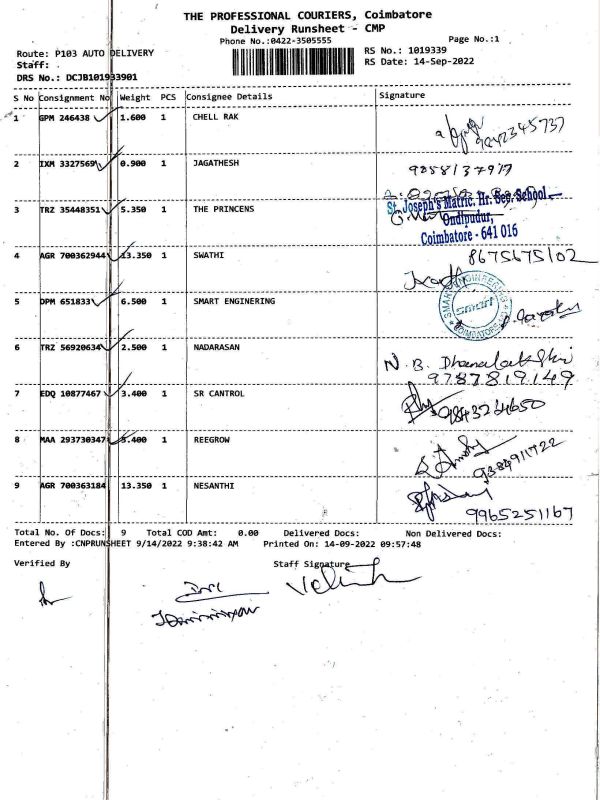 THE PROFESSIONAL COURIERS, Coimbatore
Delivery Runsheet - CMP
Phone No.:0422-3505555
Page No.:1
Route: P103 AUTO DELIVERY
RS No.: 1019339
Staff: .
RS Date: 14-Sep-2022
DRS No.: DCJB101933901
S No Consignment No Weight PCS Consignee Details Signature
1 GPM 246438 1.600 1 CHELL RAK
9842345737
2 IXM 3327569 0.900 1 JAGATHESH
9858137917
3 TRZ 35448351 5.350 1 THE PRINCENS
St. Joseph's Matric. Hr. Sec. School
Ondipudur,
Coimbatore - 641 016
4 AGR 700362944 13.350 1 SWATHI
8675675102
5 DPM 651833 6.500 1 SMART ENGINERING
smart
6 TRZ 56920634 2.500 1 NADARASAN
N. B. Dhanalakshmi
9787819149
7 EDQ 10877467 3.400 1 SR CANTROL
9843264650
8 MAA 293730347 5.400 1 REEGROW
9384911722
9 AGR 700363184 13.350 1 NESANTHI
9965251167
Total No. Of Docs: 9 Total COD Amt: 0.00 Delivered Docs: Non Delivered Docs:
Entered By :CNPRUNSHEET 9/14/2022 9:38:42 AM Printed On: 14-09-2022 09:57:48
Verified By Staff Signature